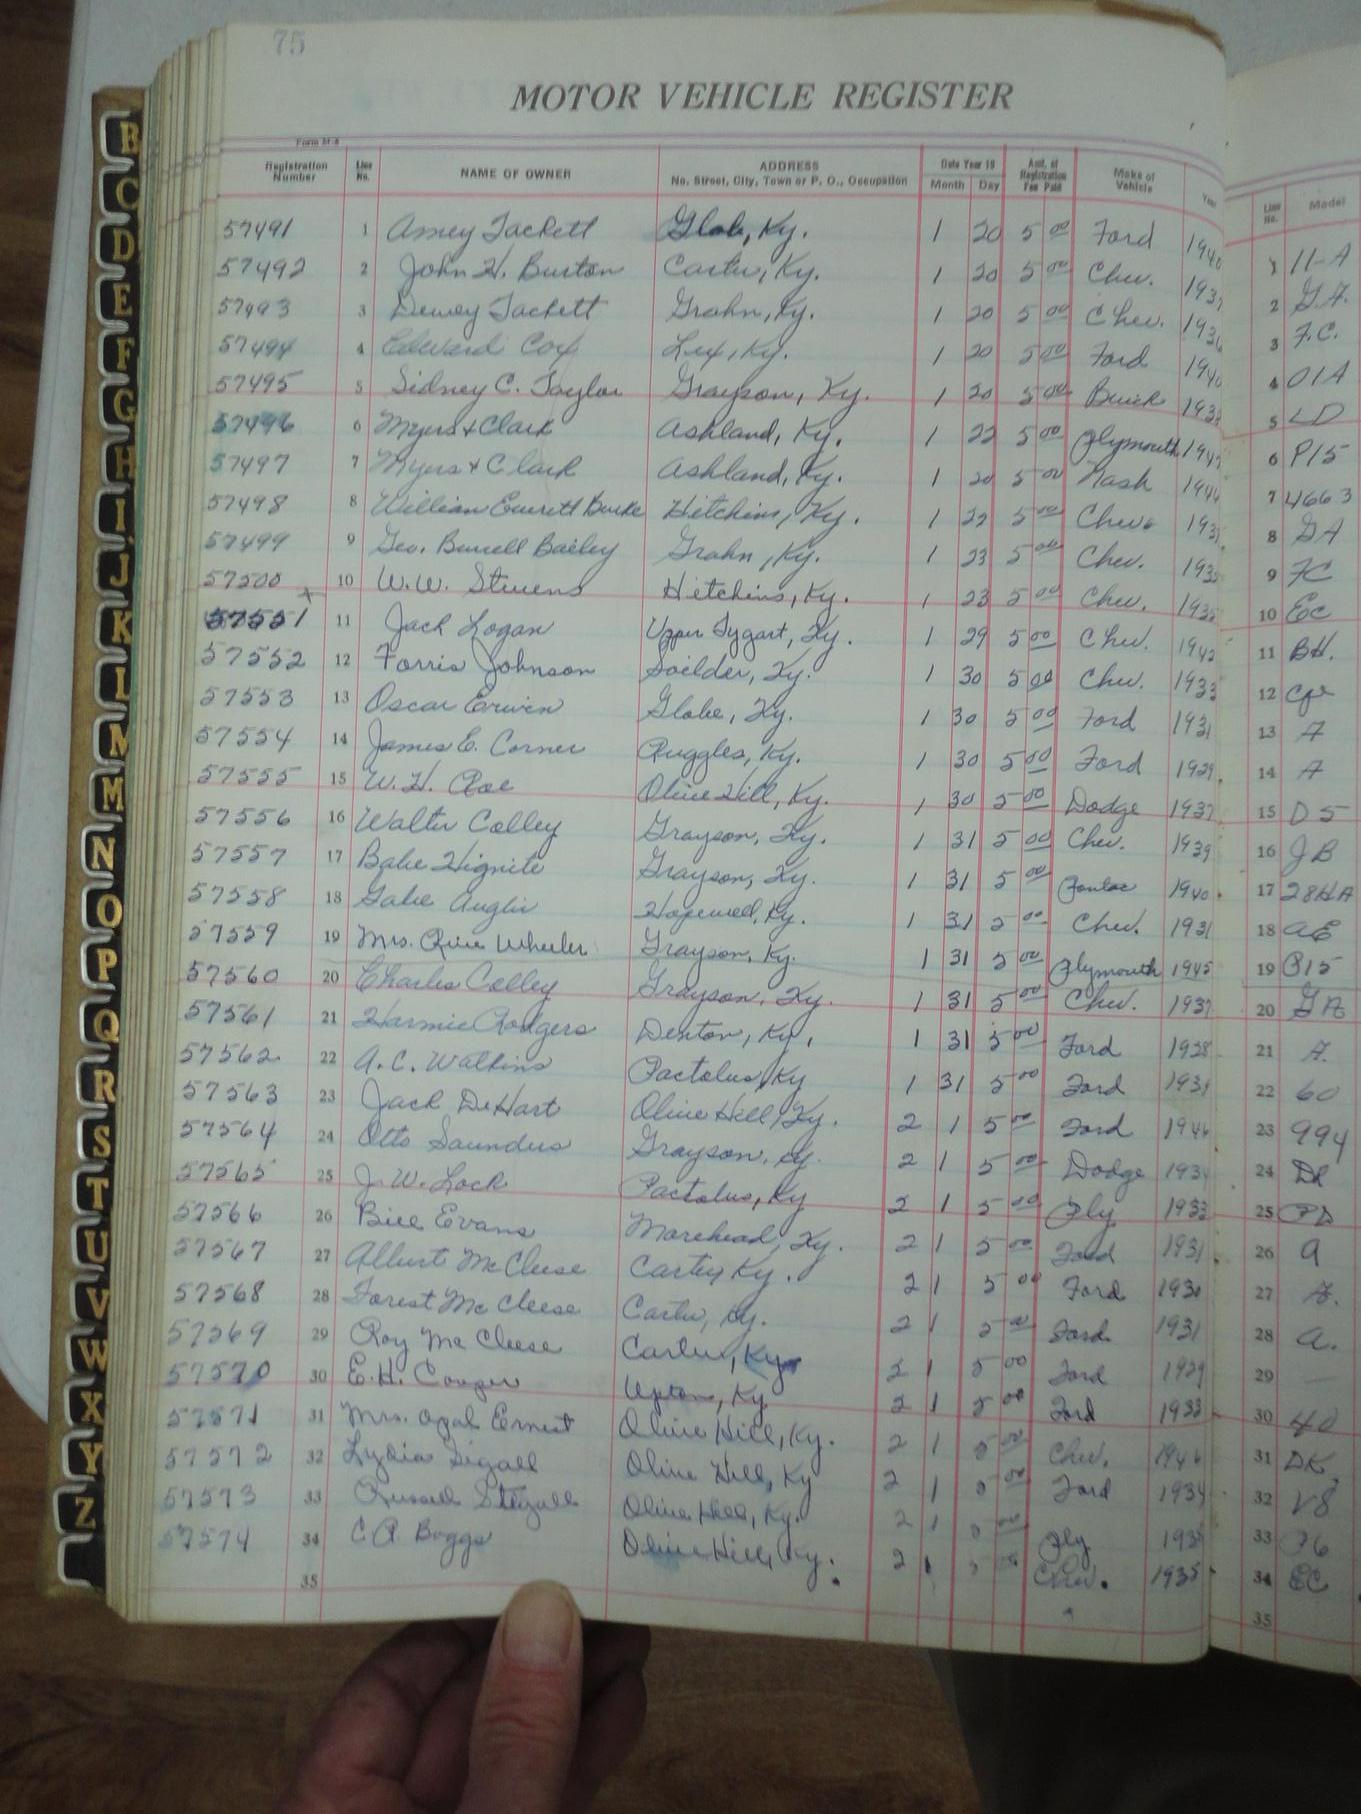 75
MOTOR VEHICLE REGISTER
Form M-8
Registration Number Line No. NAME OF OWNER ADDRESS No. Street, City, Town or P. O., Occupation Date Year 19 Month Day Amt. of Registration Fee Paid Make of Vehicle Year Line No. Model
57491 1 Amey Tackett Globe, Ky. 1 20 5 00 Ford 1940 1 11-A
57492 2 John H. Burton Carter, Ky. 1 20 5 00 Chev. 1937 2 G.A.
57493 3 Dewey Tackett Grahn, Ky. 1 20 5 00 Chev. 1936 3 F.C.
57494 4 Edward Cox Lex, Ky. 1 20 5 00 Ford 1940 4 01A
57495 5 Sidney C. Taylor Grayson, Ky. 1 20 5 00 Buick 5 LD
57496 6 Myers + Clark Ashland, Ky. 1 22 5 00 Plymouth 1947 6 P15
57497 7 Myers + Clark Ashland, Ky. 1 20 5 00 Nash 1946 7 4663
57498 8 William Everett Burke Hitchins, Ky. 1 22 5 00 Chev. 8 GA
57499 9 Geo. Burell Bailey Grahn, Ky. 1 23 5 00 Chev. 9 FC
57500 10 W.W. Stevens Hitchins, Ky. 1 23 5 00 Chev. 1935 10 EC
57551 11 Jack Logan Upper Tygart, Ky. 1 29 5 00 Chev. 1942 11 BH.
57552 12 Forris Johnson Soilder, Ky. 1 30 5 00 Chev. 1933 12
57553 13 Oscar Erwin Globe, Ky. 1 30 5 00 Ford 1931 13 A
57554 14 James E. Corner Ruggles, Ky. 1 30 5 00 Ford 1929 14 A
57555 15 W. H. Roe Olive Hill, Ky. 1 30 5 00 Dodge 1937 15 D5
57556 16 Walter Colley Grayson, Ky. 1 31 5 00 Chev. 1939 16 JB
57557 17 Babe Hignite Grayson, Ky. 1 31 5 00 Pontiac 1940 17 28HA
57558 18 Gabe Anglin Hopewell, Ky. 1 31 5 00 Chev. 1931 18 AE
57559 19 Mrs. Rice Wheeler Grayson, Ky. 1 31 5 00 Plymouth 1945 19 P15
57560 20 Charles Colley Grayson, Ky. 1 31 5 00 Chev. 1937 20 GA
57561 21 Harmie Rodgers Denton, Ky, 1 31 5 00 Ford 1928 21 A
57562 22 A. C. Watkins Pactolus, Ky 1 31 5 00 Ford 22 60
57563 23 Jack DeHart Olive Hill, Ky. 2 1 5 00 Ford 1946 23 994
57564 24 Otto Saunders Grayson, Ky. 2 1 5 00 Dodge 1934 24 DR
57565 25 J. W. Lock Pactolus, Ky 2 1 5 00 Ply 1933 25 PD
57566 26 Bill Evans Morehead, Ky. 2 1 5 00 Ford 1931 26 A
57567 27 Albert McCleese Carter, Ky. 2 1 5 00 Ford 1930 27 A.
57568 28 Forest McCleese Carter, Ky. 2 1 5 00 Ford 1931 28 A.
57569 29 Roy McCleese Carter, Ky. 2 1 5 00 Ford 1929 29 —
57570 30 E. H. Cooper Upton, Ky 2 1 5 00 Ford 1933 30 40
57571 31 Mrs. Opal Ernest Olive Hill, Ky. 2 1 5 00 Chev. 1946 31 DK
57572 32 Lydia Sigall Olive Hill, Ky 2 1 5 00 Ford 1934 32 V8
57573 33 Russell Stegall Olive Hill, Ky. 2 1 5 00 Ply 33 P6
57574 34 C. R. Boggs Olive Hill, Ky. 2 1 Chev. 1935 34 EC
35 35
B
C
D
E
F
G
H
I
J
K
L
M
M
N
O
P
Q
R
S
T
U
V
W
X
Y
Z